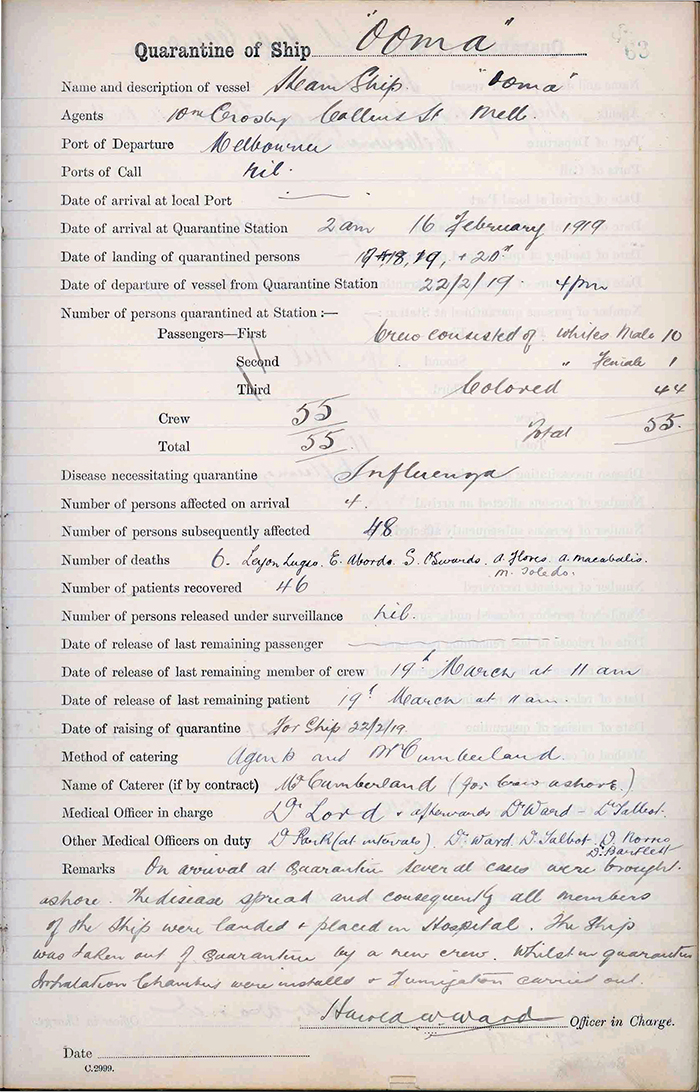 Quarantine of Ship "OOMA" 63
Name and description of vessel Steam Ship "Ooma"
Agents Wm Crosby Collins St Melb.
Port of Departure Melbourne
Ports of Call Nil.
Date of arrival at local Port
Date of arrival at Quarantine Station 2 am 16 February 1919
Date of landing of quarantined persons 18, 19, + 20"
Date of departure of vessel from Quarantine Station 22/2/19 4 pm
Number of persons quarantined at Station :—
Passengers—First Crew consisted of Whites Male 10
Second " Female 1
Third Colored 44
Crew 55
Total 55. Total 55.
Disease necessitating quarantine Influenza
Number of persons affected on arrival 4.
Number of persons subsequently affected 48
Number of deaths 6. E. Abordo. S. A. Flores. A. Macabalis.
M. Toledo.
Number of patients recovered 46
Number of persons released under surveillance Nil.
Date of release of last remaining passenger
Date of release of last remaining member of crew 19th March at 11 am
Date of release of last remaining patient 19th March at 11 am.
Date of raising of quarantine For Ship 22/2/19
Method of catering Agents and Mr Cumberland.
Name of Caterer (if by contract) Mr Cumberland (for Crew ashore.)
Medical Officer in charge Dr Lord + afterwards Dr Ward – Dr Talbot.
Other Medical Officers on duty Dr Park (at intervals). Dr Ward. Dr Talbot. Dr
Dr Bartlett
Remarks On arrival at Quarantine several cases were brought
ashore. The disease spread and consequently all members
of the Ship were landed + placed in Hospital. The Ship
was taken out of Quarantine by a new crew. Whilst in quarantine
Inhalation Chambers were installed + Fumigation carried out.
Harold W. Ward Officer in Charge.
Date
C.2999.